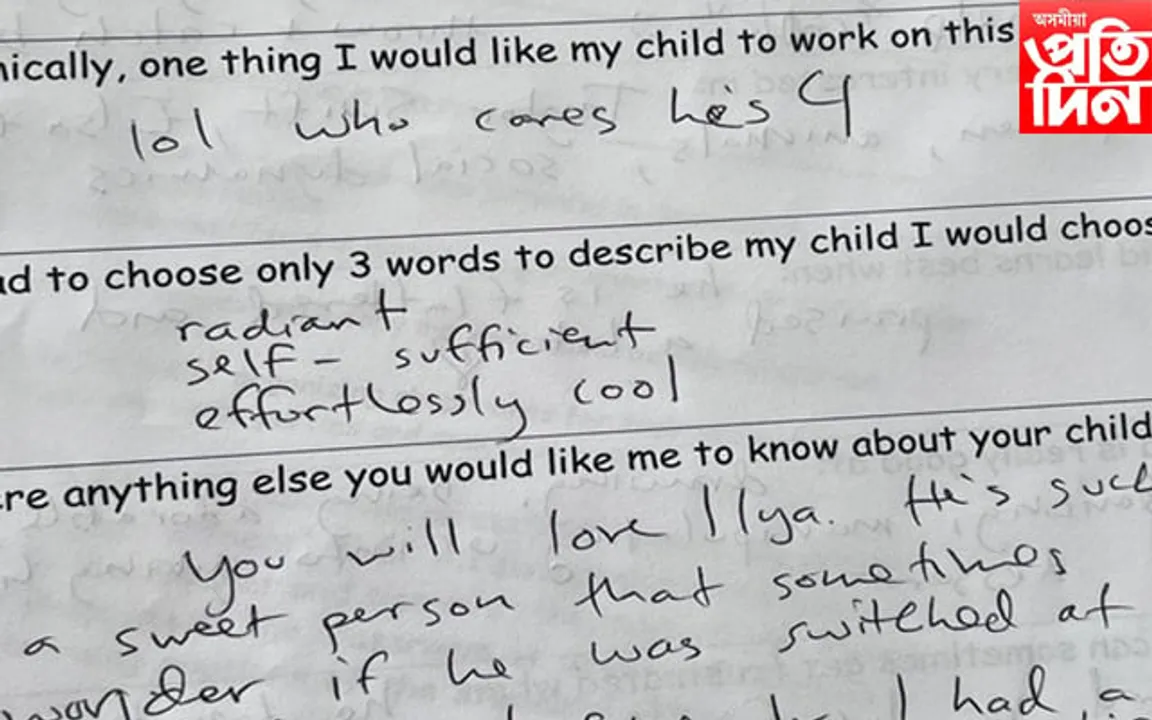 ically, one thing I would like my child to work on this
lol who cares he's 4
অসমীয়া
প্রতি
দিন
ad to choose only 3 words to describe my child I would choos
radiant
self-sufficient
effortlessly cool
ere anything else you would like me to know about your child
You will love Ilya. He's such
a sweet person that sometimes
wonder if he was switched at
I had a